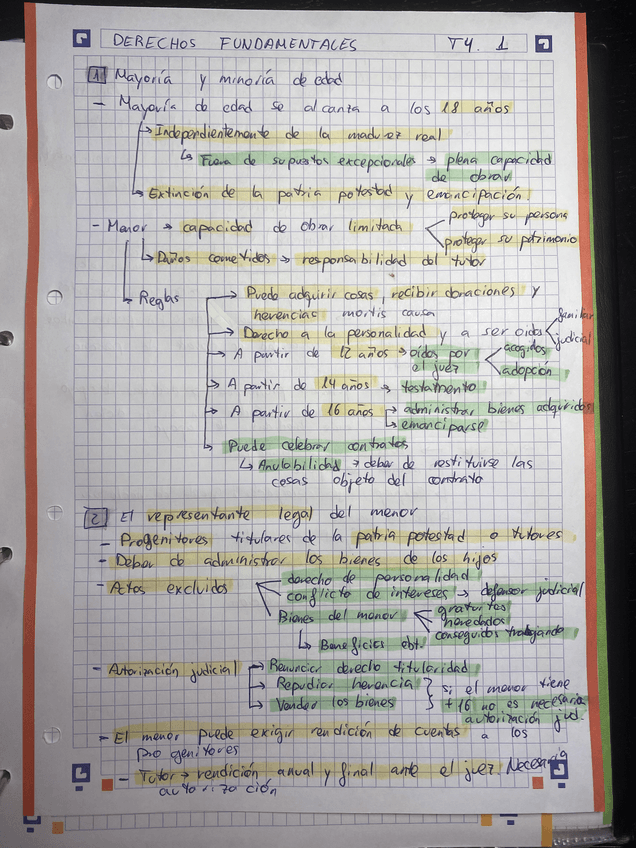 DERECHOS FUNDAMENTALES T4. 1
1 Mayoría y minoría de edad
- Mayoría de edad se alcanza a los 18 años
→ Independientemente de la madurez real
↳ Fuera de supuestos excepcionales → plena capacidad
de obrar
→ Extinción de la patria potestad y emancipación.
- Menor → capacidad de obrar limitada
proteger su persona
proteger su patrimonio
↳ Daños cometidos → responsabilidad del tutor
↳ Reglas
→ Puede adquirir cosas, recibir donaciones y
herencias mortis causa
→ Derecho a la personalidad y a ser oídos
familiar
judicial
→ A partir de 12 años → oídos por
el juez
acogidos
adopción
→ A partir de 14 años → testamento
→ A partir de 16 años → administrar bienes adquiridos
↳ emanciparse
→ Puede celebrar contratos
↳ Anulabilidad → deber de restituirse las
cosas objeto del contrato
2 El representante legal del menor
- Progenitores titulares de la patria potestad o tutores
- Deber de administrar los bienes de los hijos
- Actos excluidos
derecho de personalidad
conflicto de intereses → defensor judicial
Bienes del menor
gratuitos
heredados
conseguidos trabajando
↳ Beneficios obt.
- Autorización judicial
→ Renunciar derecho titularidad
→ Repudiar herencia
→ Vender los bienes
} si el menor tiene
+ 16 no es necesaria
autorización jud.
- El menor puede exigir rendición de cuentas a los
progenitores
- Tutor → rendición anual y final ante el juez. Necesaria
autorización